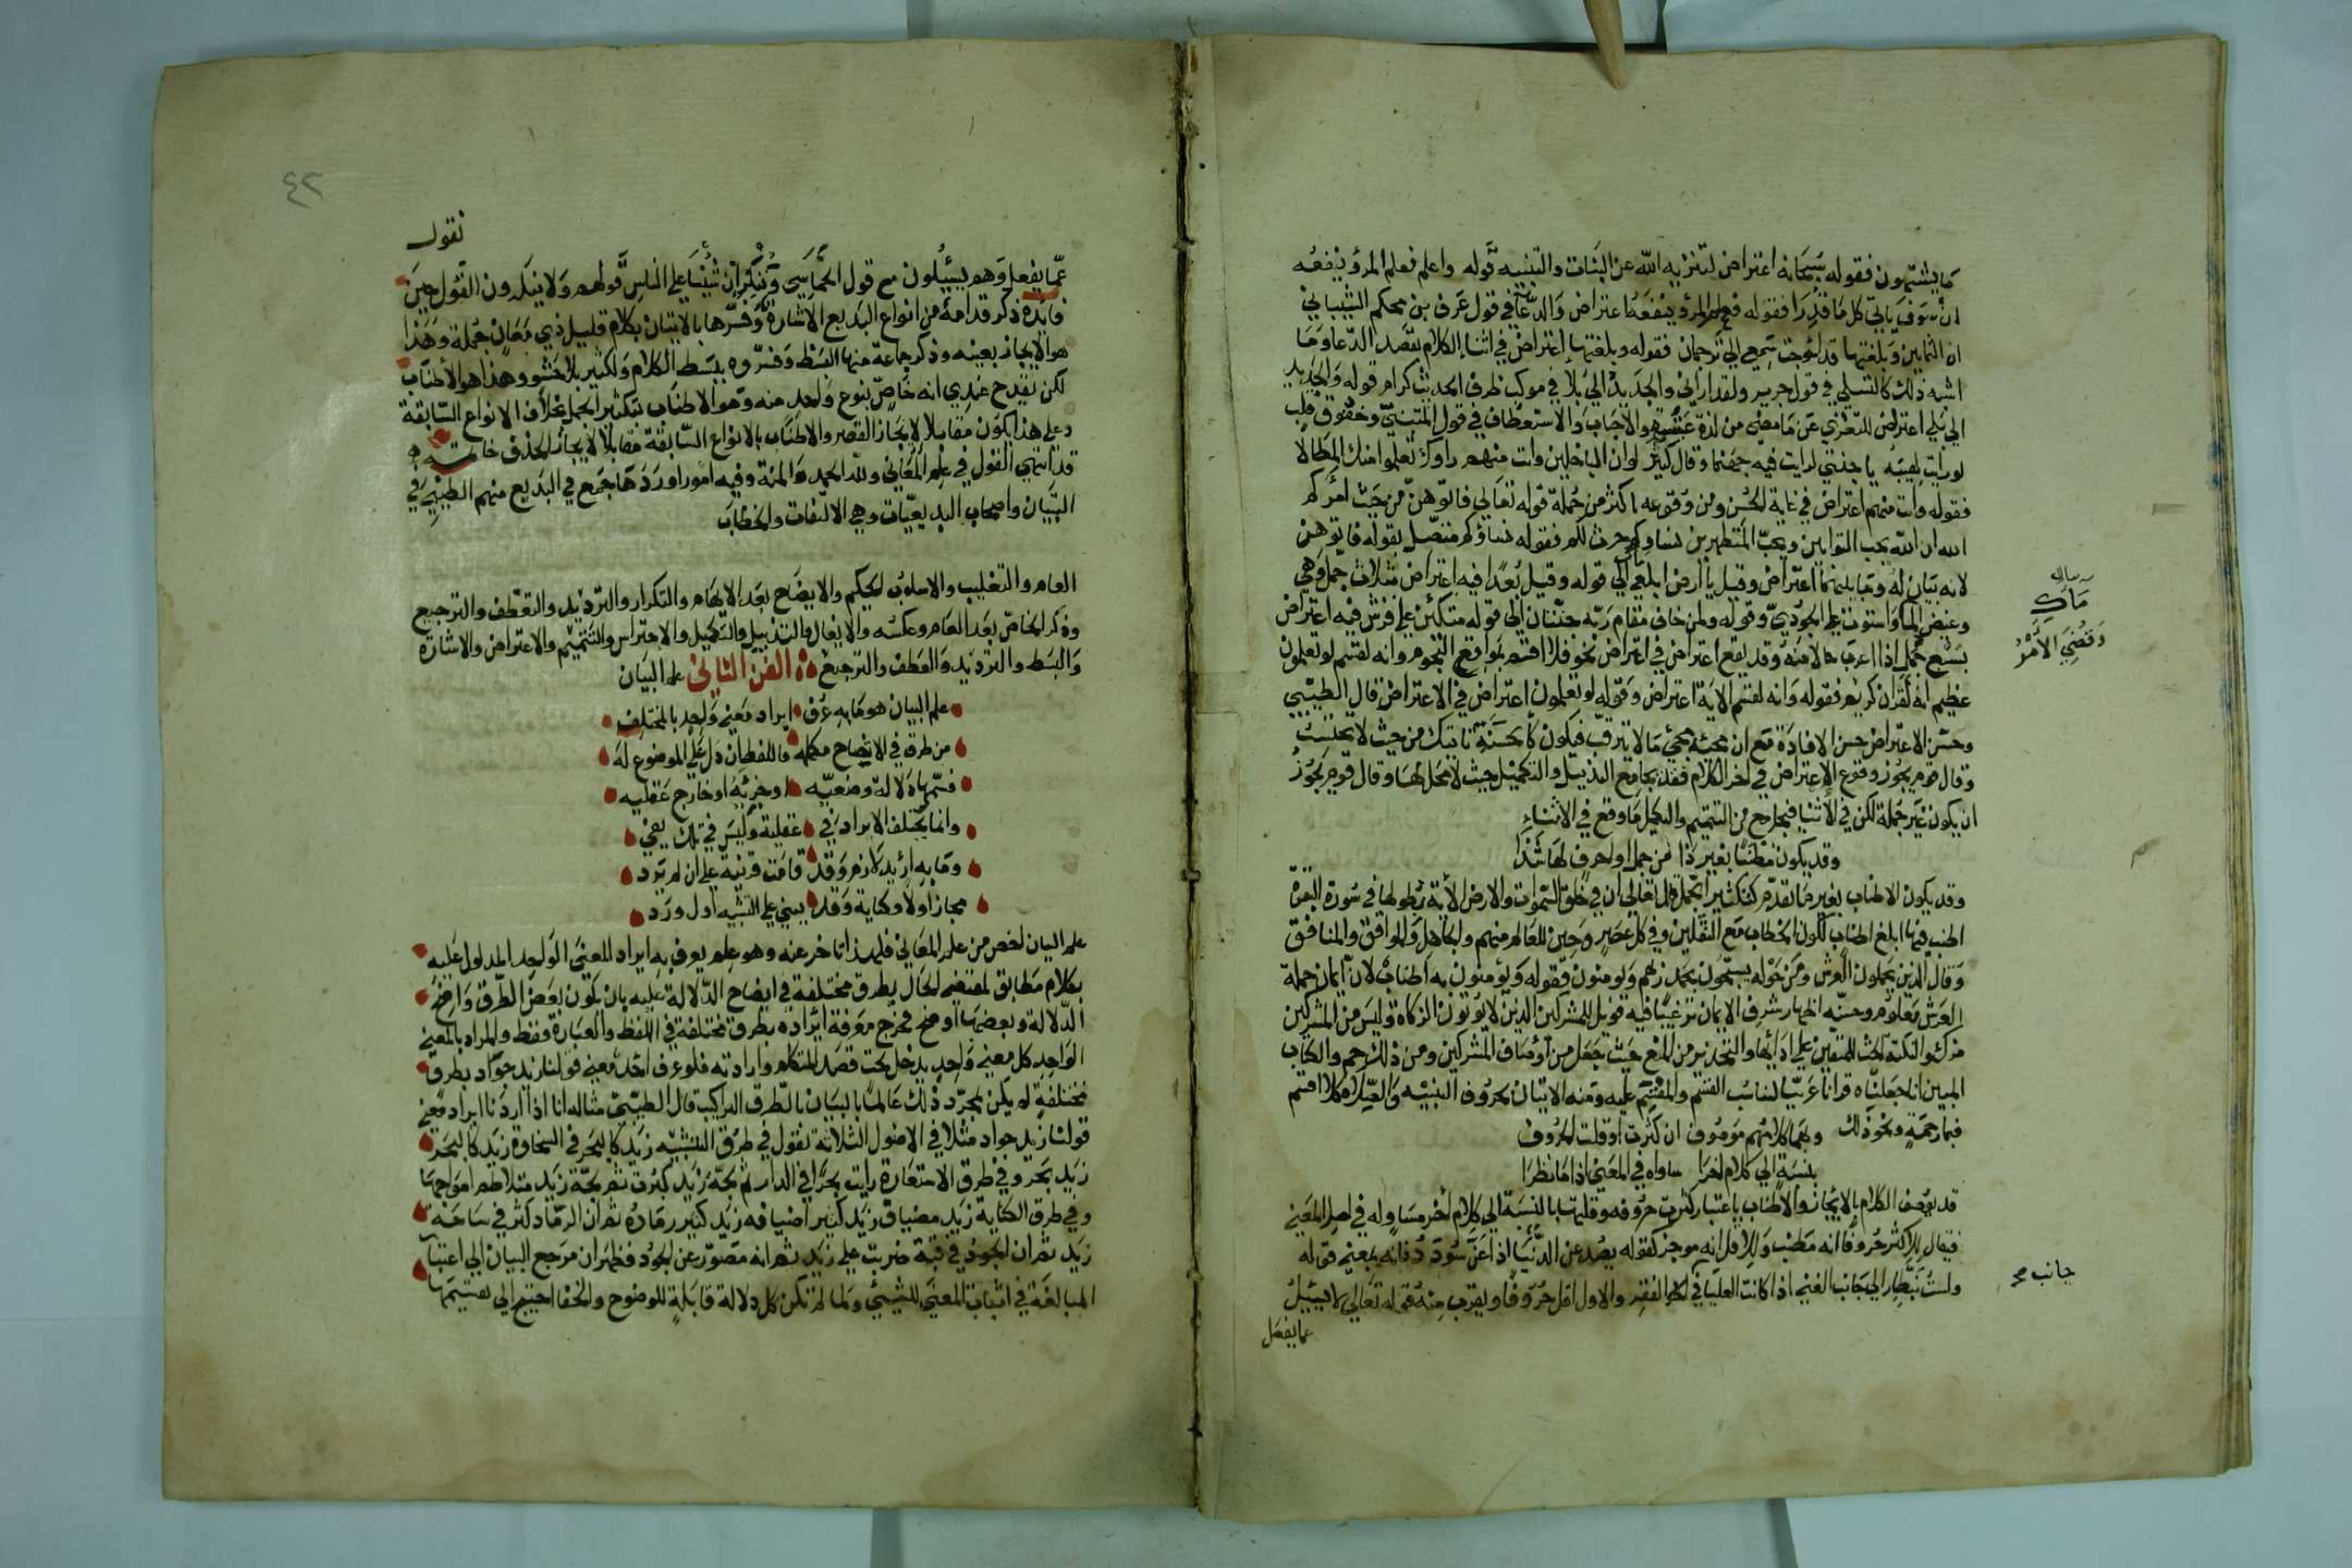 ما يشتهون فقوله سبحانه اعتراض لتنزيه الله عن البنات والتنبيه قوله واعلم فعلم المرء ينفعه
ان سوف ياتي كل ما قدرا فقوله فعلم المرء ينفعه اعتراض والدعا في قول عوف بن محكم الشيباني
ان الثمانين وبلغتها قد احوجت سمعي الي ترجمان فقوله وبلغتها اعتراض في اثناء الكلام لقصد الدعا وما
اشبه ذلك كالتسلي في قول جرير ولقد اراني والجديد الي بلا في موكب طرف الحديث كرام قوله والجديد
الي بلي اعتراض للتعزي عن ما مضي من لذة والاستعطاف في قول المتنبي وخفوق قلب
لو رايت لهيبه يا جنتي لرايت فيه جهنما وقال كثير لو ان الباخلين وانت منهم راوك تعلموا منك المطالا
فقوله وانت منهم اعتراض في غاية الحسن ومن وقوعه باكثر من جملة قوله تعالي فاتوهن من حيث امركم
الله ان الله يحب التوابين ويحب المتطهرين نساوكم حرث لكم فقوله نساؤكم متصل بقوله فاتوهن
لانه بيان له وما بينهما اعتراض وقيل يا ارض ابلعي الي قوله وقيل بعدا فيه اعتراض بثلاث جمل وهي
وغيض الما واستوت علي الجودي وقوله ولمن خاف مقام ربه جنتان الي قوله متكئين علي فرش فيه اعتراض
بسبع جمل اذا اعرب حالا منه وقد يقع اعتراض في اعتراض نحو فلا اقسم بمواقع النجوم وانه لقسم لو تعلمون
عظيم انه لقران كريم فقوله وانه لقسم الاية اعتراض وقوله لو تعلمون اعتراض في الاعتراض قال الطيبي
وحسن الاعتراض حسن الافادة مع ان مجيئه مجئ ما لا يترقب فيكون كالحسنة تاتيك من حيث لا تحتسب
وقال قوم يجوز وقوع الاعتراض في اخر الكلام فقد يجامع التذييل والتكميل حيث لا محل لها وقال قوم يجوز
ان يكون غير جملة لكن في الاثنا فيجامع من التتميم والتكميل ما وقع في الاثناء
وقد يكون مطنبا بغير ذا من جمل او احرف لها شذا
وقد يكون الاطناب بغير ما تقدم كتكثير الجمل قال تعالي ان في خلق السموات والارض الاية بطولها في سورة البقرة
اطنب فيها ابلغ اطناب لكون الخطاب مع الثقلين وفي كل عصر وحين للعالم منهم والجاهل والموافق والمنافق
وقال الذين يحملون العرش ومن حوله يسبحون بحمد ربهم ويومنون فقوله ويؤمنون به اطناب لان ايمان حملة
العرش معلوم وحسنه اظهار شرف الايمان ترغيبا فيه فويل للمشركين الذين لا يؤتون الزكاة وليس من المشركين
مزك والنكتة الحث للمومنين علي ادائها والتحذير من المنع حيث جعل من اوصاف المشركين ومن ذلك حم والكتاب
المبين انا جعلناه قرانا عربيا لتناسب القسم والمقسم عليه ومنه الاتيان بحروف التنبيه والصلة لا اقسم
فبما رحمة ونحو ذلك وربما كلامهم موصوف ان كثرت او قلت الحروف
بنسبة الي كلام اخرا ساواه في المعني اذا ما نظرا
قد يوصف الكلام بالايجاز والاطناب باعتبار كثرة حروفه وقلتها بالنسبة الي كلام اخر مساو له في اصل المعني
فيقال للاكثر حروفا انه مطنب وللاقل انه موجز كقوله يصد عن الدنيا اذا عن سودد فانه بمعني قوله
ولست بنظار الي جانب الغني اذا كانت العليا في الفقر والاول اقل حروفا ويقرب منه قوله تعالي لا يسئل
عما يفعل
بيان
ماك
وقضي الامر
جانب صح
٤٢
نقول
عما يفعل وهم يسئلون مع قول الحماسي وننكر ان شئنا علي الناس قولهم ولا ينكرون القول حين
فايدة ذكر قدامة من انواع البديع الاشارة وفسرها بالاتيان بكلام قليل ذي معان جملة وهذا
هو الايجاز بعينه وذكر جماعة منها البسط وفسروه ببسط الكلام والتكثير بلا حشو وهذا هو الاطناب
لكن يقدح عندي انه خاص بنوع واحد منه وهو الاطناب بتكثير الجمل بخلاف الانواع السابقة
وعلي هذا يكون مقابلا لايجاز القصر والاطناب بالانواع السابقة مقابلا لايجاز الحذف خاتمة
قد انتهي القول في علم المعاني ولله الحمد والمنة وفيه امور اوردها جمع في البديع منهم الطيبي في
التبيان واصحاب البديعيات وهي الالتفات والخطاب
العام والتغليب والاسلوب الحكيم والايضاح بعد الابهام والتكرار والترديد والتعطف والترجيع
وذكر الخاص بعد العام وعكسه والايغال والتذييل والتكميل والاحتراس والتتميم والاعتراض والاشارة
والبسط والترديد والعطف والترجيع الفن الثاني علم البيان
علم البيان هو ما به عرف ايراد معني واحد بالمختلف
من طرق في الاتضاح مكمله فاللفظ ان دل علي الموضوع له
فسمها دلالة وضعيه او جزئه او خارج عقليه
وانما يختلف الايراد في عقلية وليس في تلك يفي
وما به اريد لازم وقد قامت قرينة علي ان لم يرد
مجاز اولا وكناية وقد يبني علي التشبيه اول ورد
علم البيان اخص من علم المعاني فلهذا تاخر عنه وهو علم يعرف به ايراد المعني الواحد المدلول عليه
بكلام مطابق لمقتضي الحال بطرق مختلفة في ايضاح الدلالة عليه بان يكون بعض الطرق واضح
الدلالة وبعضها اوضح فخرج معرفة ايراده بطرق مختلفة في اللفظ والعبارة فقط والمراد بالمعني
الواحد كل معني واحد يدخل تحت قصد المتكلم وارادته فلو عرف احد معني قولنا زيد جواد بطرق
مختلفة لم يكن بمجرد ذلك عالما بالبيان بالطرق التراكيب قال الطيبي مثاله انا اذا اردنا ايراد معني
قولنا زيد جواد مثلا في الاصول الثلاثة نقول في طرق التشبيه زيد كالبحر في السخاوة زيد كالبحر
زيد بحر وفي طرق الاستعارة رايت بحرا في الدار ثم لجة زيد كثرت ثم لجة زيد متلاطم امواجها
وفي طرق الكناية زيد مضياف زيد كثير اضيافه زيد كثير رماده ثم ان الرماد كثر في ساحة
زيد ثم ان الجود في قبة ضربت علي زيد ثم انه مصور عن الجود فظهر ان مرجع البيان الي اعتبار
المبالغة في اثبات المعني للشيئ ولما لم تكن كل دلالة قابلة للوضوح والخفا احتيج الي تقسيمها